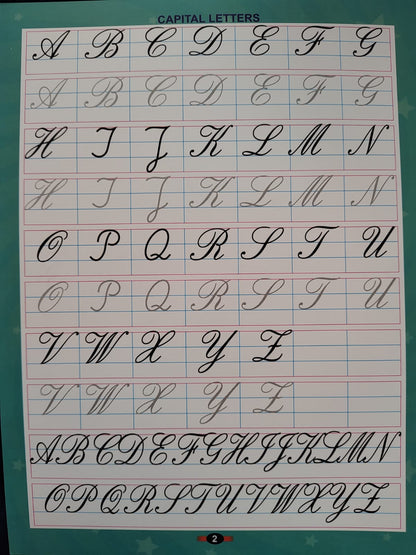 CAPITAL LETTERS
A B C D E F G
A B C D E F G
H I J K L M N
H I J K L M N
O P Q R S T U
O P Q R S T U
V W X Y Z
V W X Y Z
ABCDEFGHIJKLMN
OPQRSTUVWXYZ
2